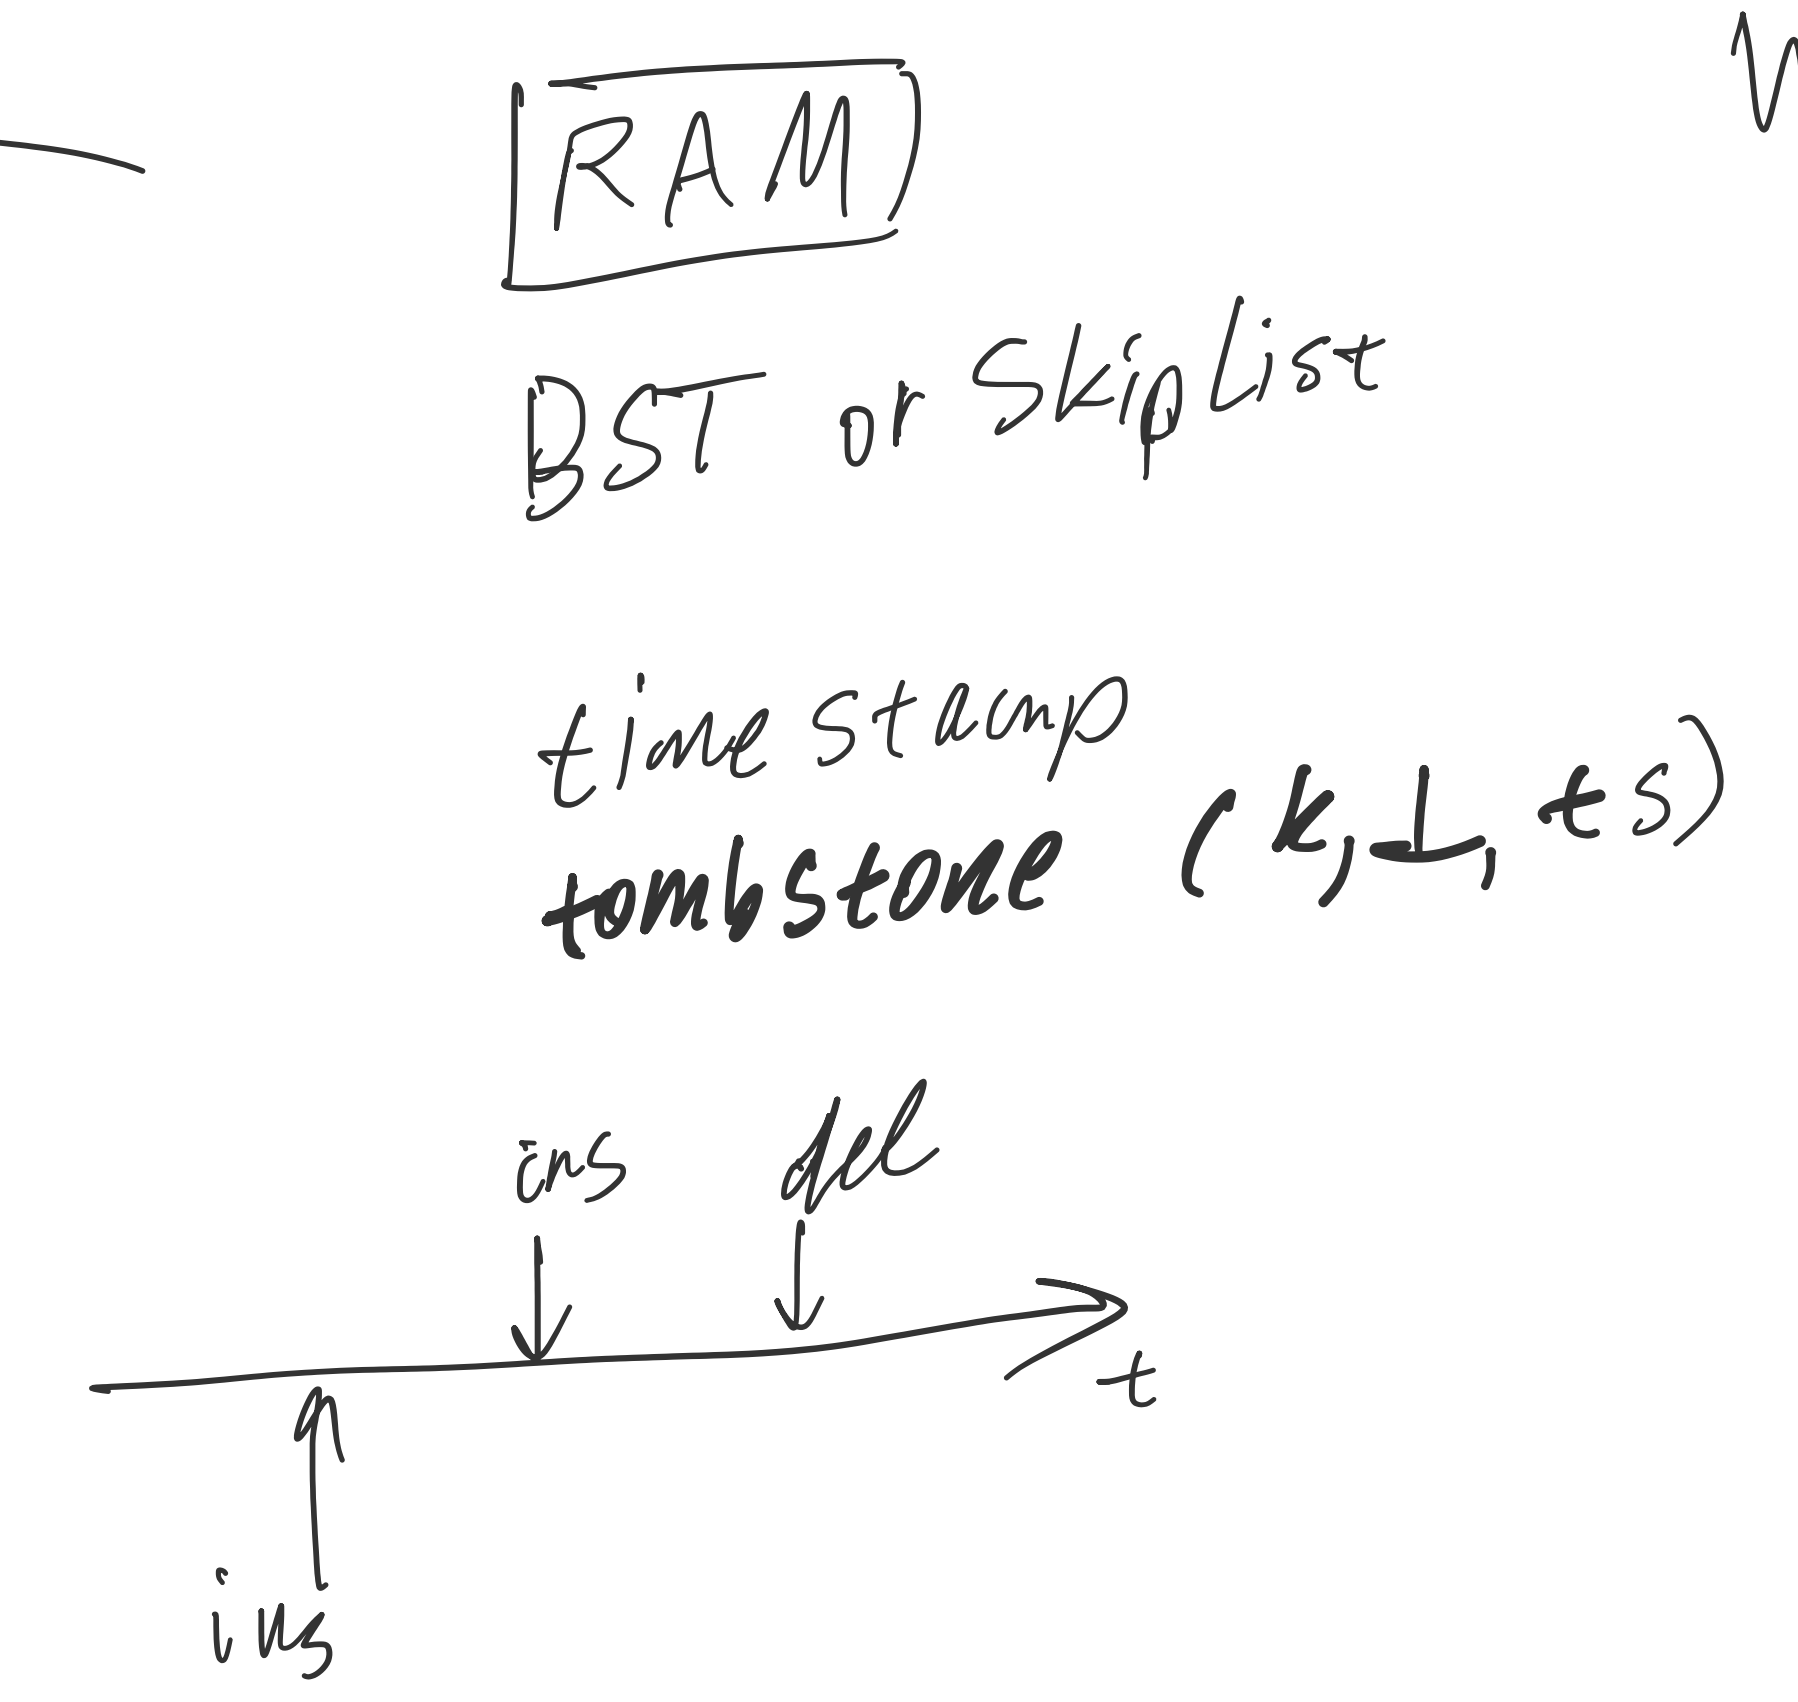 RAM
BST or Skiplist
timestamp
tombstone (k,⊥, ts)
ins del
t
ins